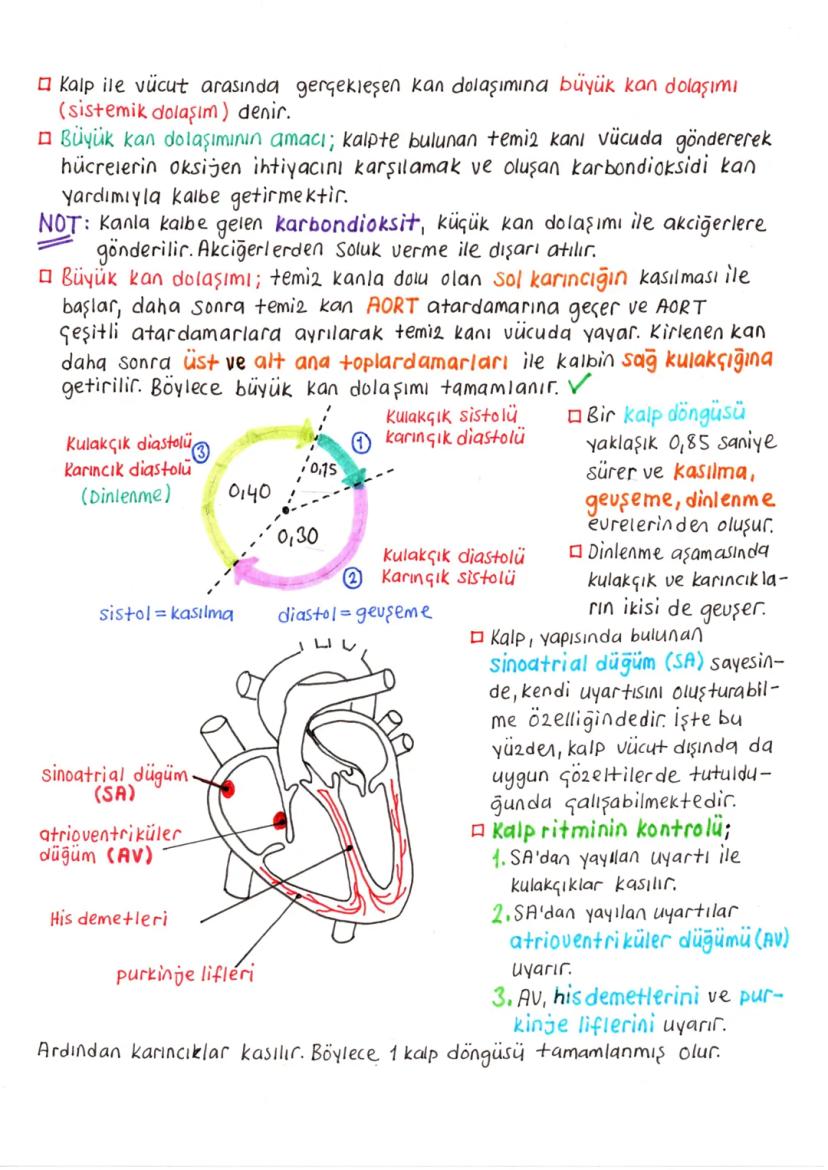 Kalp ile vücut arasında gerçekleşen kan dolaşımına büyük kan dolaşımı
(sistemik dolaşım) denir.
Büyük kan dolaşımının amacı; kalpte bulunan temiz kanı vücuda göndererek
hücrelerin oksijen ihtiyacını karşılamak ve oluşan karbondioksidi kan
yardımıyla kalbe getirmektir.
NOT: Kanla kalbe gelen karbondioksit, küçük kan dolaşımı ile akciğerlere
gönderilir. Akciğerlerden soluk verme ile dışarı atılır.
Büyük kan dolaşımı; temiz kanla dolu olan sol karıncığın kasılması ile
başlar, daha sonra temiz kan AORT atardamarına geçer ve AORT
çeşitli atardamarlara ayrılarak temiz kanı vücuda yayar. Kirlenen kan
daha sonra üst ve alt ana toplardamarları ile kalbin sağ kulakçığına
getirilir. Böylece büyük kan dolaşımı tamamlanır. ✓
Kulakçık diastolü
Karıncık diastolü
(Dinlenme)
3
0,40
0,15
0,30
1
Kulakçık sistolü
karınçık diastolü
2
Kulakçık diastolü
Karınçık sistolü
sistol = kasılma diastol = gevşeme
Bir kalp döngüsü
yaklaşık 0,85 saniye
sürer ve kasılma,
gevşeme, dinlenme
evrelerinden oluşur.
Dinlenme aşamasında
kulakçık ve karıncıkla-
rın ikisi de gevşer.
Kalp, yapısında bulunan
sinoatrial düğüm (SA) sayesin-
de, kendi uyartısını oluşturabil-
me özelliğindedir. İşte bu
yüzden, kalp vücut dışında da
uygun çözeltilerde tutuldu-
ğunda çalışabilmektedir.
Kalp ritminin kontrolü;
1. SA'dan yayılan uyartı ile
kulakçıklar kasılır.
2. SA'dan yayılan uyartılar
atrioventriküler düğümü (AV)
uyarır.
3. AV, his demetlerini ve pur-
kinje liflerini uyarır.
sinoatrial düğüm
(SA)
atrioventriküler
düğüm (AV)
His demetleri
purkinje lifleri
Ardından karıncıklar kasılır. Böylece 1 kalp döngüsü tamamlanmış olur.